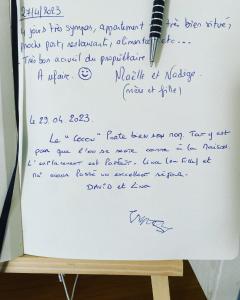 27/4/2023
4 jours très sympas, appartement très bien situé,
proche port, restaurant, alimentation etc...
Très bon accueil du propriétaire
A refaire. ☺ Maëlle et Nadège.
(mère et fille)
Le 29.04.2023.
Le "Cocon" Porte bien son nom. Tout y est
pour que l'on se sente comme à la maison.
L'emplacement est Parfait.
nous avons Passé un excellent séjour.
DAVID et Lina